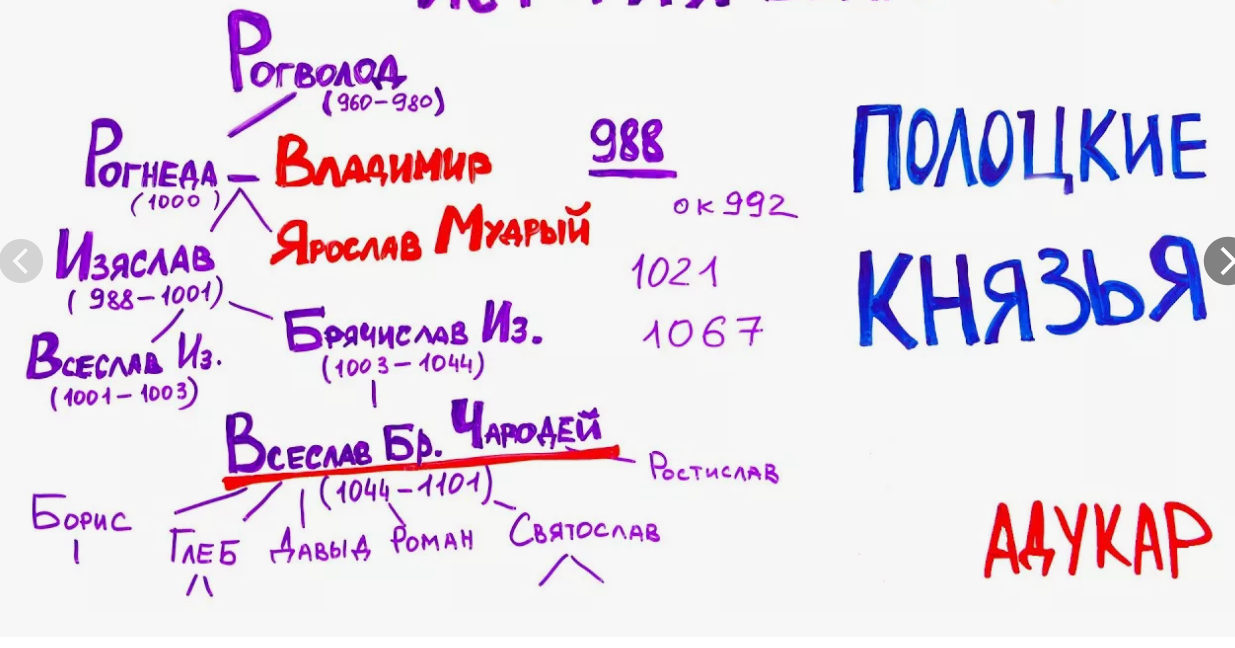 Рогволод
(960-980)
Рогнеда - Владимир
(1000)
Ярослав Мудрый
Изяслав
(988-1001)
Всеслав Из.
(1001-1003)
Брячислав Из.
(1003-1044)
Всеслав Бр. Чародей
(1044-1101)
Борис
Глеб
Давыд
Роман
Святослав
Ростислав
988
ок 992
1021
1067
ПОЛОЦКИЕ
КНЯЗЬЯ
АДУКАР